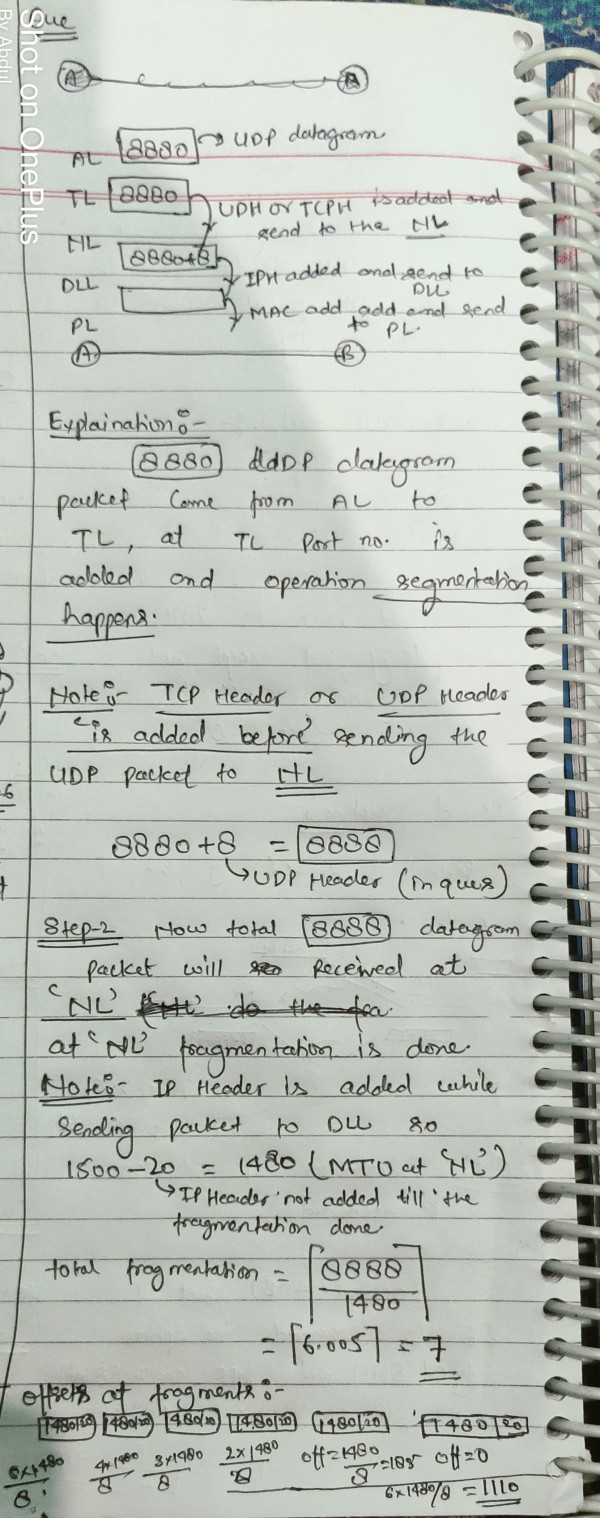 Que
A B
AL 8880 → UDP datagram
TL 8880 UDH or TCPH is added and
send to the NL
NL 8880+8 IPH added and send to
DLL DLL
MAC add add and send
PL to PL.
A B
Explaination:-
8880 UdDP datagram
packet Come from AL to
TL, at TL Port no. is
added and operation segmentation
happens.
Note:- TCP Header or UDP Header
is added before sending the
UDP packet to NL
8880+8 = 8888
UDP Header (in ques)
Step-2 Now total 8888 datagram
packet will received at
'NL'
at 'NL' fragmentation is done.
Note:- IP Header is added while
sending packet to DLL so
1500-20 = 1480 (MTU at 'NL')
IP Header not added till the
fragmentation done.
total fragmentation = ⌈8888/1480⌉
= ⌈6.005⌉ = 7
offsets of fragments:-
1480|20 1480|20 1480|20 1480|20 1480|20 1480|20
6x1480/8 4x1480/8 3x1480/8 2x1480/8 off=1480/8=185 off=0
6x1480/8 = 1110
Shot on OnePlus
By Abdul